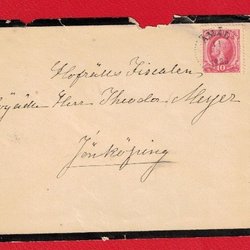 Hofrätts Fiscalen
Herr Theodor Meyer
Jönköping
10